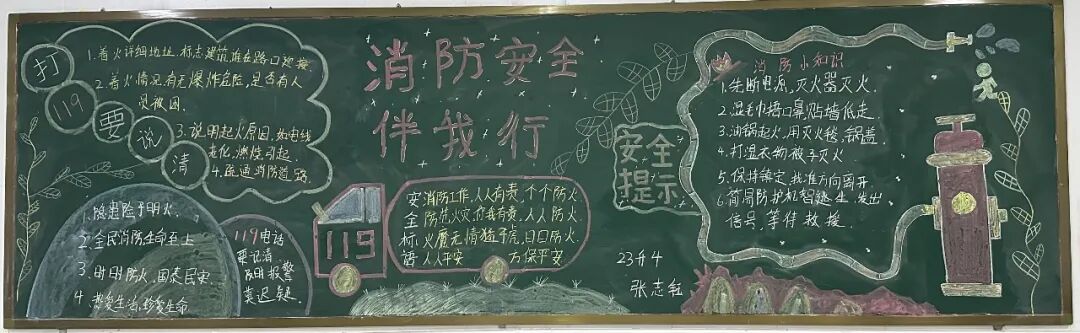 打119要说清
1.着火详细地址、标志建筑,谁在路口迎接
2.着火情况,有无爆炸危险,是否有人
员被困
3.说明起火原因,如电线
老化、燃烧引起.
4.疏通消防道路.
消防安全
伴我行
消防小知识
1.先断电源,灭火器灭火.
2.湿毛巾捂口鼻,贴墙低走
3.油锅起火,用灭火毯、锅盖
4.打湿衣物被子灭火
5.保持镇定,找准方向离开
信号,等待救援.
安全
提示
1.隐患险于明火.
2.全民消防生命至上
3.时时防火,国泰民安
4.热爱生活,珍爱生命
119电话
要记清
及时报警
莫迟疑
119
安全标语
消防工作,人人有责,个个防火
防范火灾,你我有责,人人防火
火魔无情猛于虎,日日防火
人人平安 万保平安
23升4